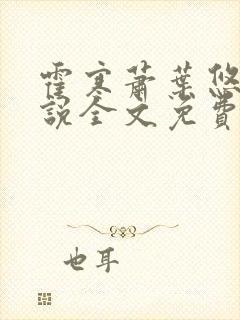 霍寒蕭葉悠
說全文免費
也耳